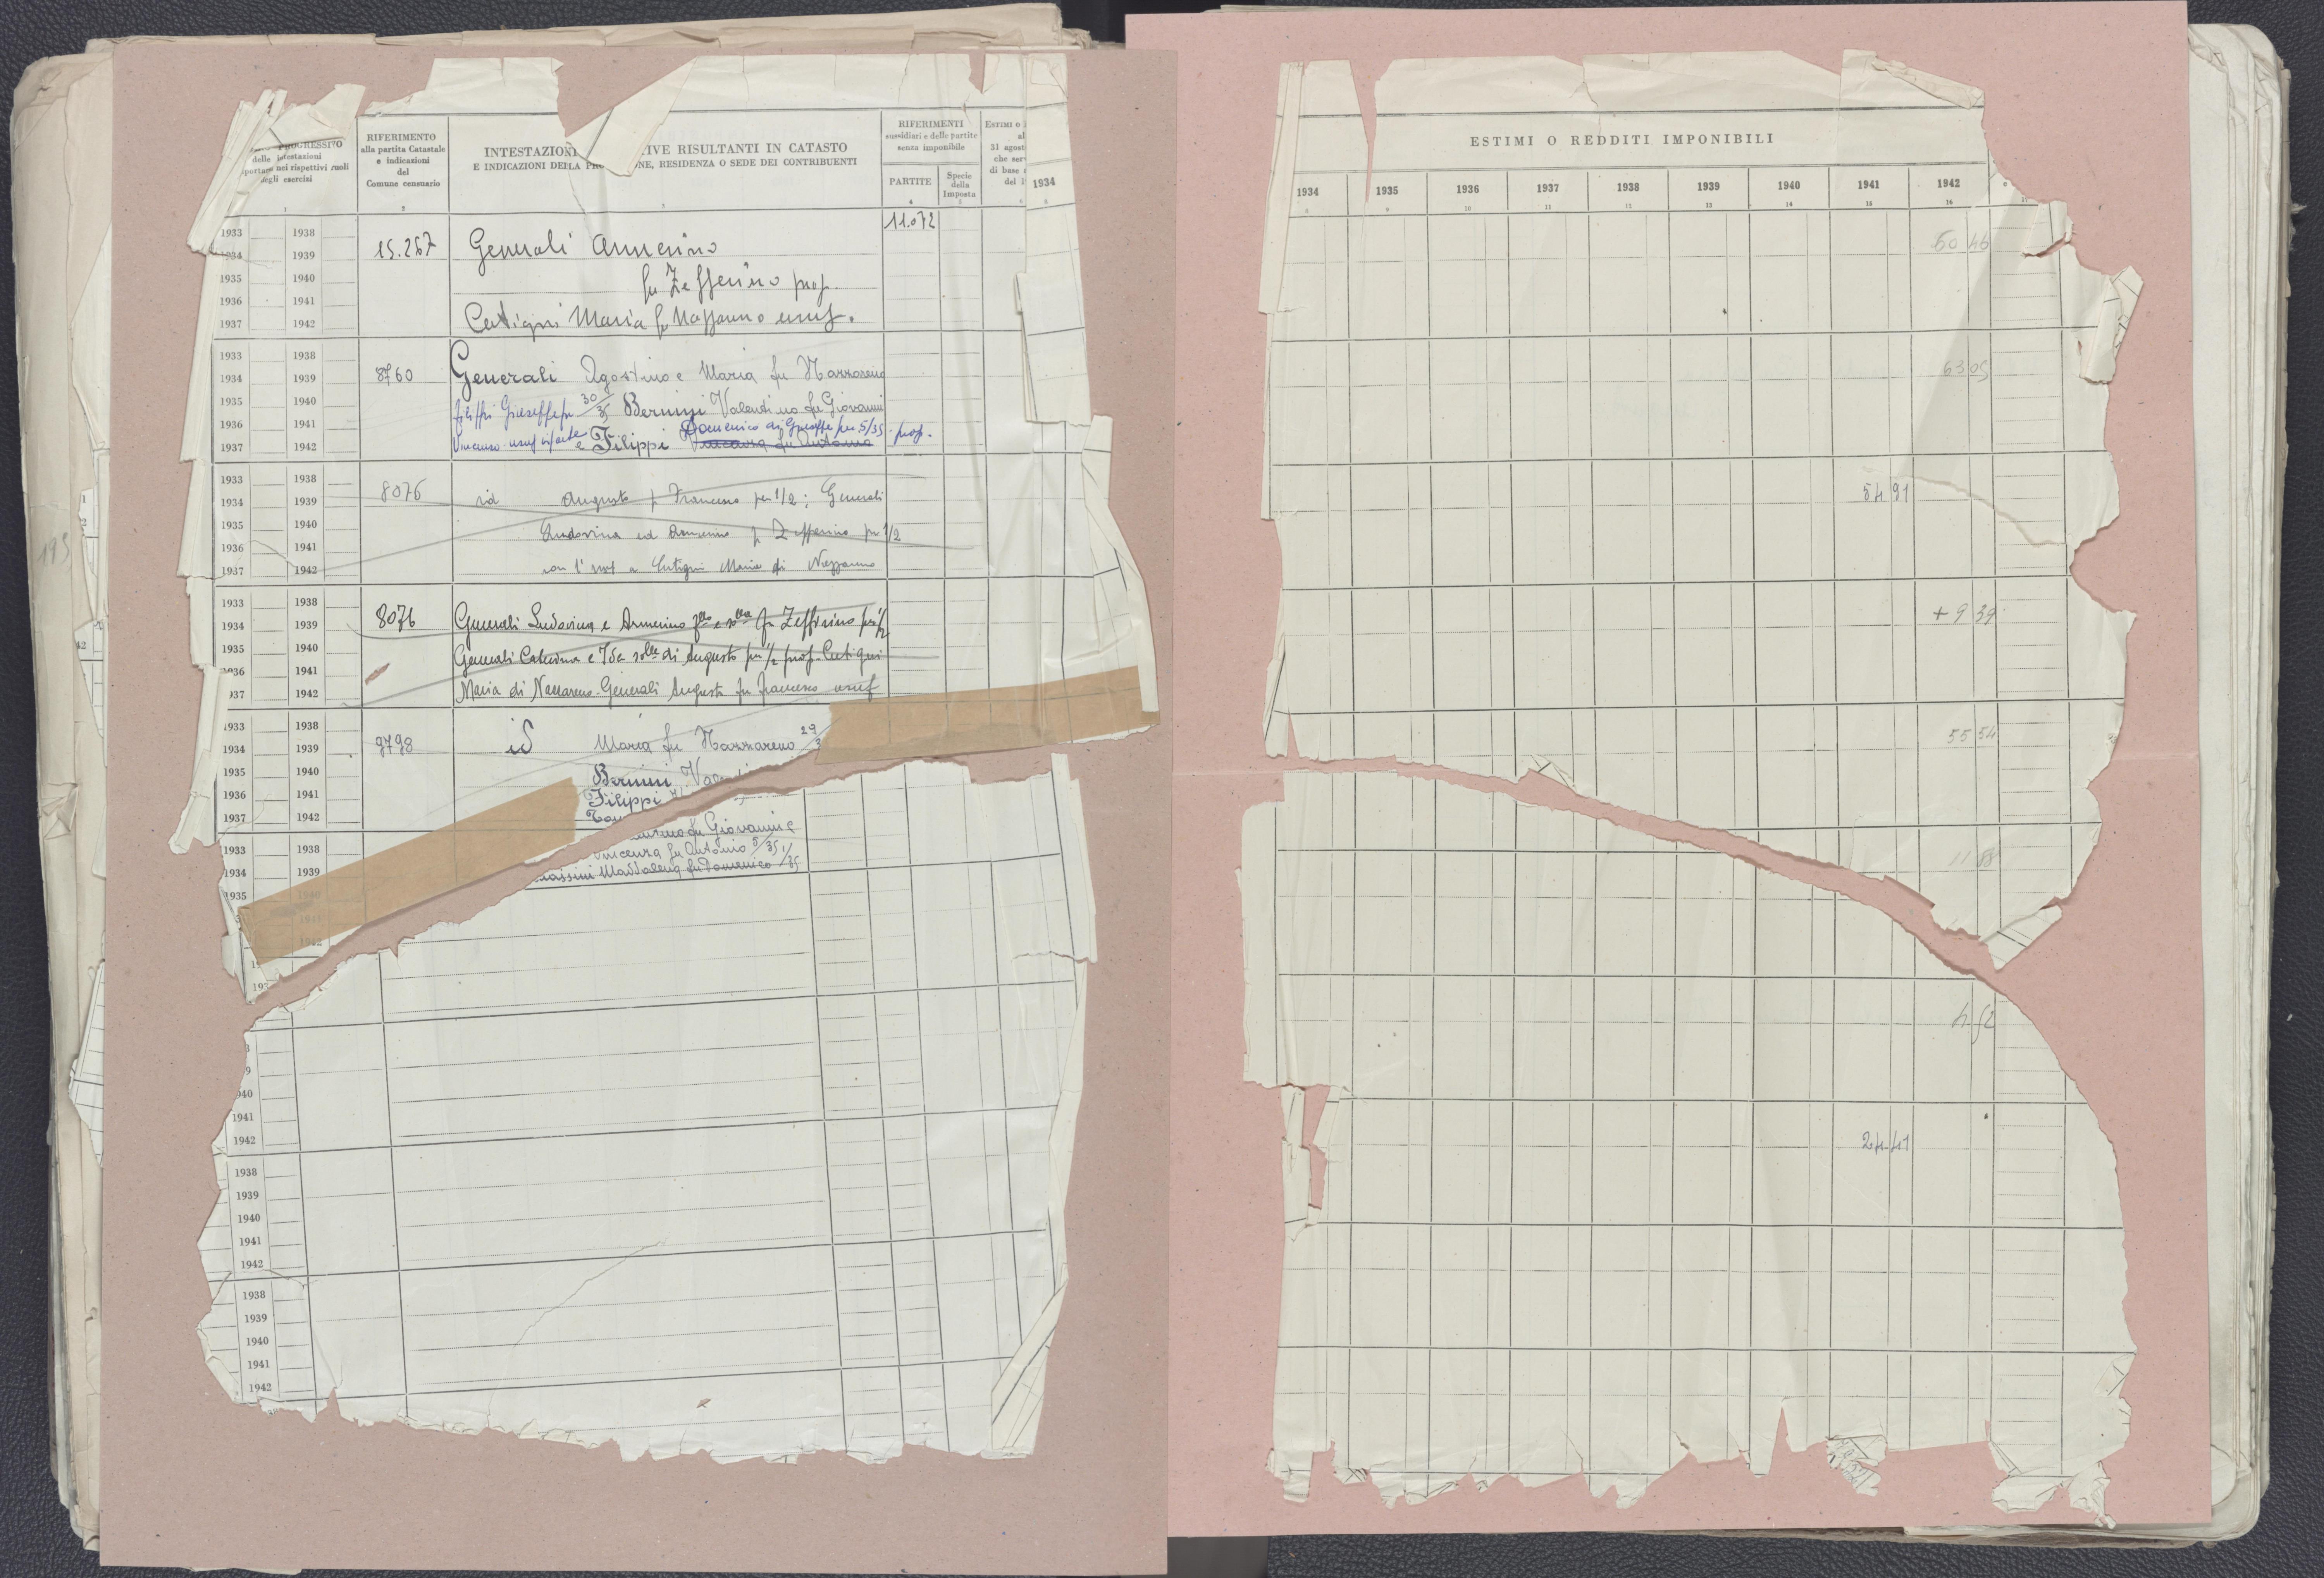 PROGRESSIVO
delle intestazioni
nei rispettivi ruoli
degli esercizi
1
RIFERIMENTO
alla partita Catastale
e indicazioni
del
Comune censuario
2
INTESTAZIONI
IVE RISULTANTI IN CATASTO
E INDICAZIONI DELLA
NE, RESIDENZA O SEDE DEI CONTRIBUENTI
3
RIFERIMENTI
sussidiari e delle partite
senza imponibile
PARTITE
4
Specie
della
Imposta
5
ESTIMI O
al
31 agost
che ser
di base
del 1
1934
1933 1938
1934 1939
1935 1940
1936 1941
1937 1942
15.267
Generali Armerino
fu Zefferino prop.
Cutigni Maria fu Nazzareno usuf.
11.072
1933 1938
1934 1939
1935 1940
1936 1941
1937 1942
8760
Generali Agostino e Maria fu Nazzareno
Filippi Giuseppe fu 30/35 Bernini Valentino fu Giovanni
Vincenzo usuf. in parte e Filippi Domenico di Giuseppe per 5/35 - prop.
Vincenza fu Antonio
1933 1938
1934 1939
1935 1940
1936 1941
1937 1942
8076
id Augusto f Francesco per 1/2; Generali
Ludovina ed Armerino f Zefferino per 1/2
con l'usuf a Cutigni Maria di Nazzareno
1933 1938
1934 1939
1935 1940
1936 1941
1937 1942
8076
Generali Ludovina e Armerino flli e slla fu Zeffirino per 1/2
Generali Caterina e Ida slle di Augusto per 1/2 prop. Cutigni
Maria di Nazzareno - Generali Augusto fu Francesco usuf
1933 1938
1934 1939
1935 1940
1936 1941
1937 1942
9798
id Maria fu Nazzareno 29
Bernini
Filippi
fu Giovanni e
Vincenza fu Antonio 5/35
Maddalena fu Domenico 1/35
1933 1938
1934 1939
1935
1940
1941
1942
1938
1939
1940
1941
1942
1938
1939
1940
1941
1942
ESTIMI O REDDITI IMPONIBILI
1934 1935 1936 1937 1938 1939 1940 1941 1942
8 9 10 11 12 13 14 15 16 17
60 46
63 05
54 91
+ 9 39
55 54
11 88
4 52
24 41